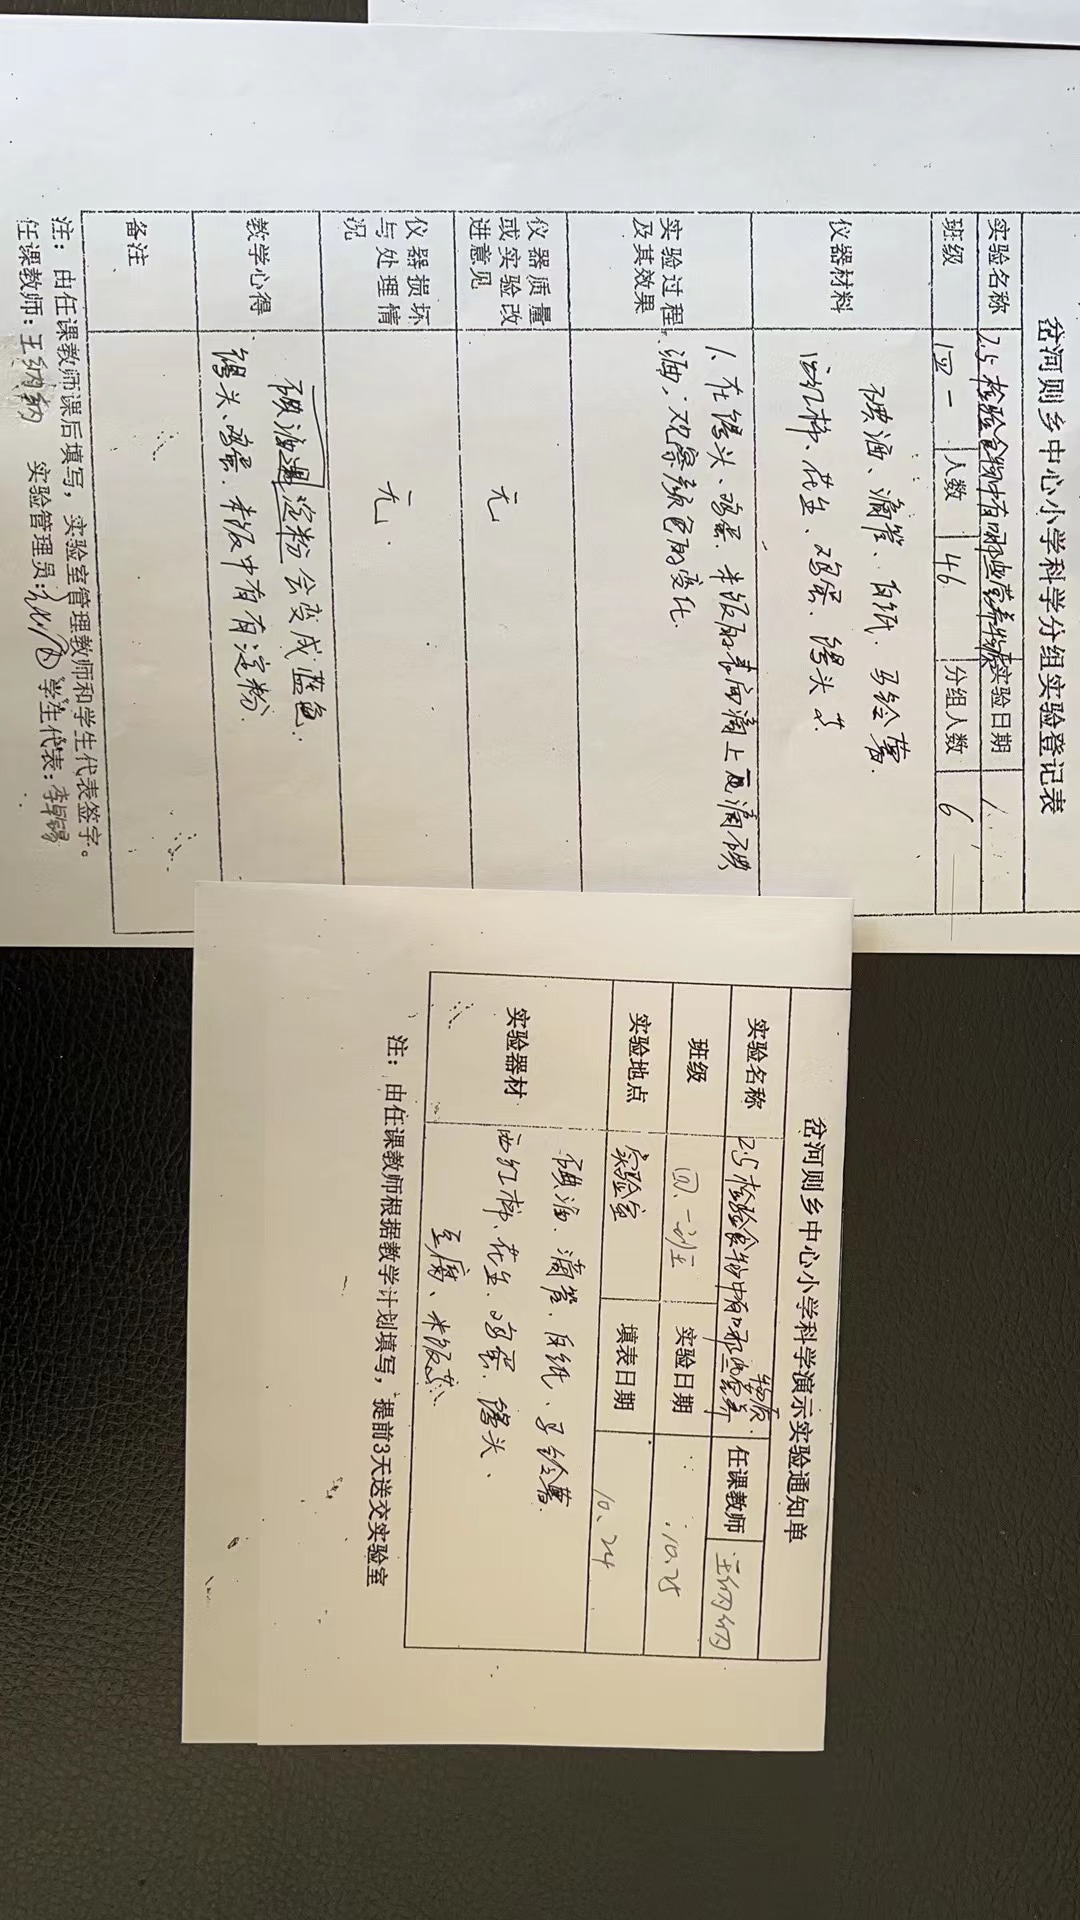 岔河则乡中心小学科学分组实验登记表
实验名称 2.5检验食物中有哪些营养物质 实验日期
班级 四一 人数 46 分组人数 6
仪器材料
碘酒、滴管、白纸、马铃薯、
西红柿、花生、鸡蛋、馒头等
实验过程
及其效果
1、在馒头、鸡蛋、米饭的表面滴上几滴碘
酒,观察颜色的变化.
仪器质量
或实验改
进意见
无
仪器损坏
与处理情
况
无.
教学心得
碘酒遇淀粉会变成蓝色.
馒头、鸡蛋、米饭中有有淀粉.
备注
注:由任课教师课后填写,实验室管理教师和学生代表签字。
任课教师:王纳纳 实验管理员: 学生代表:李
岔河则乡中心小学科学演示实验通知单
实验名称 2.5检验食物中有哪些营养物质. 任课教师 王纳纳
班级 四、一班 实验日期 10.25
实验地点 实验室 填表日期 10、24
实验器材
碘酒、滴管、白纸、马铃薯、
西红柿、花生、鸡蛋、馒头、
豆腐、米饭等.
注:由任课教师根据教学计划填写,提前3天送交实验室